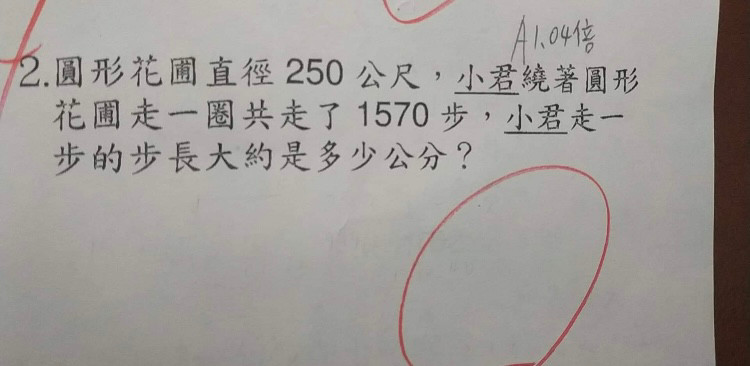 A1.04倍
2.圓形花圃直徑 250 公尺，小君繞著圓形
花圃走一圈共走了 1570 步，小君走一
步的步長大約是多少公分？